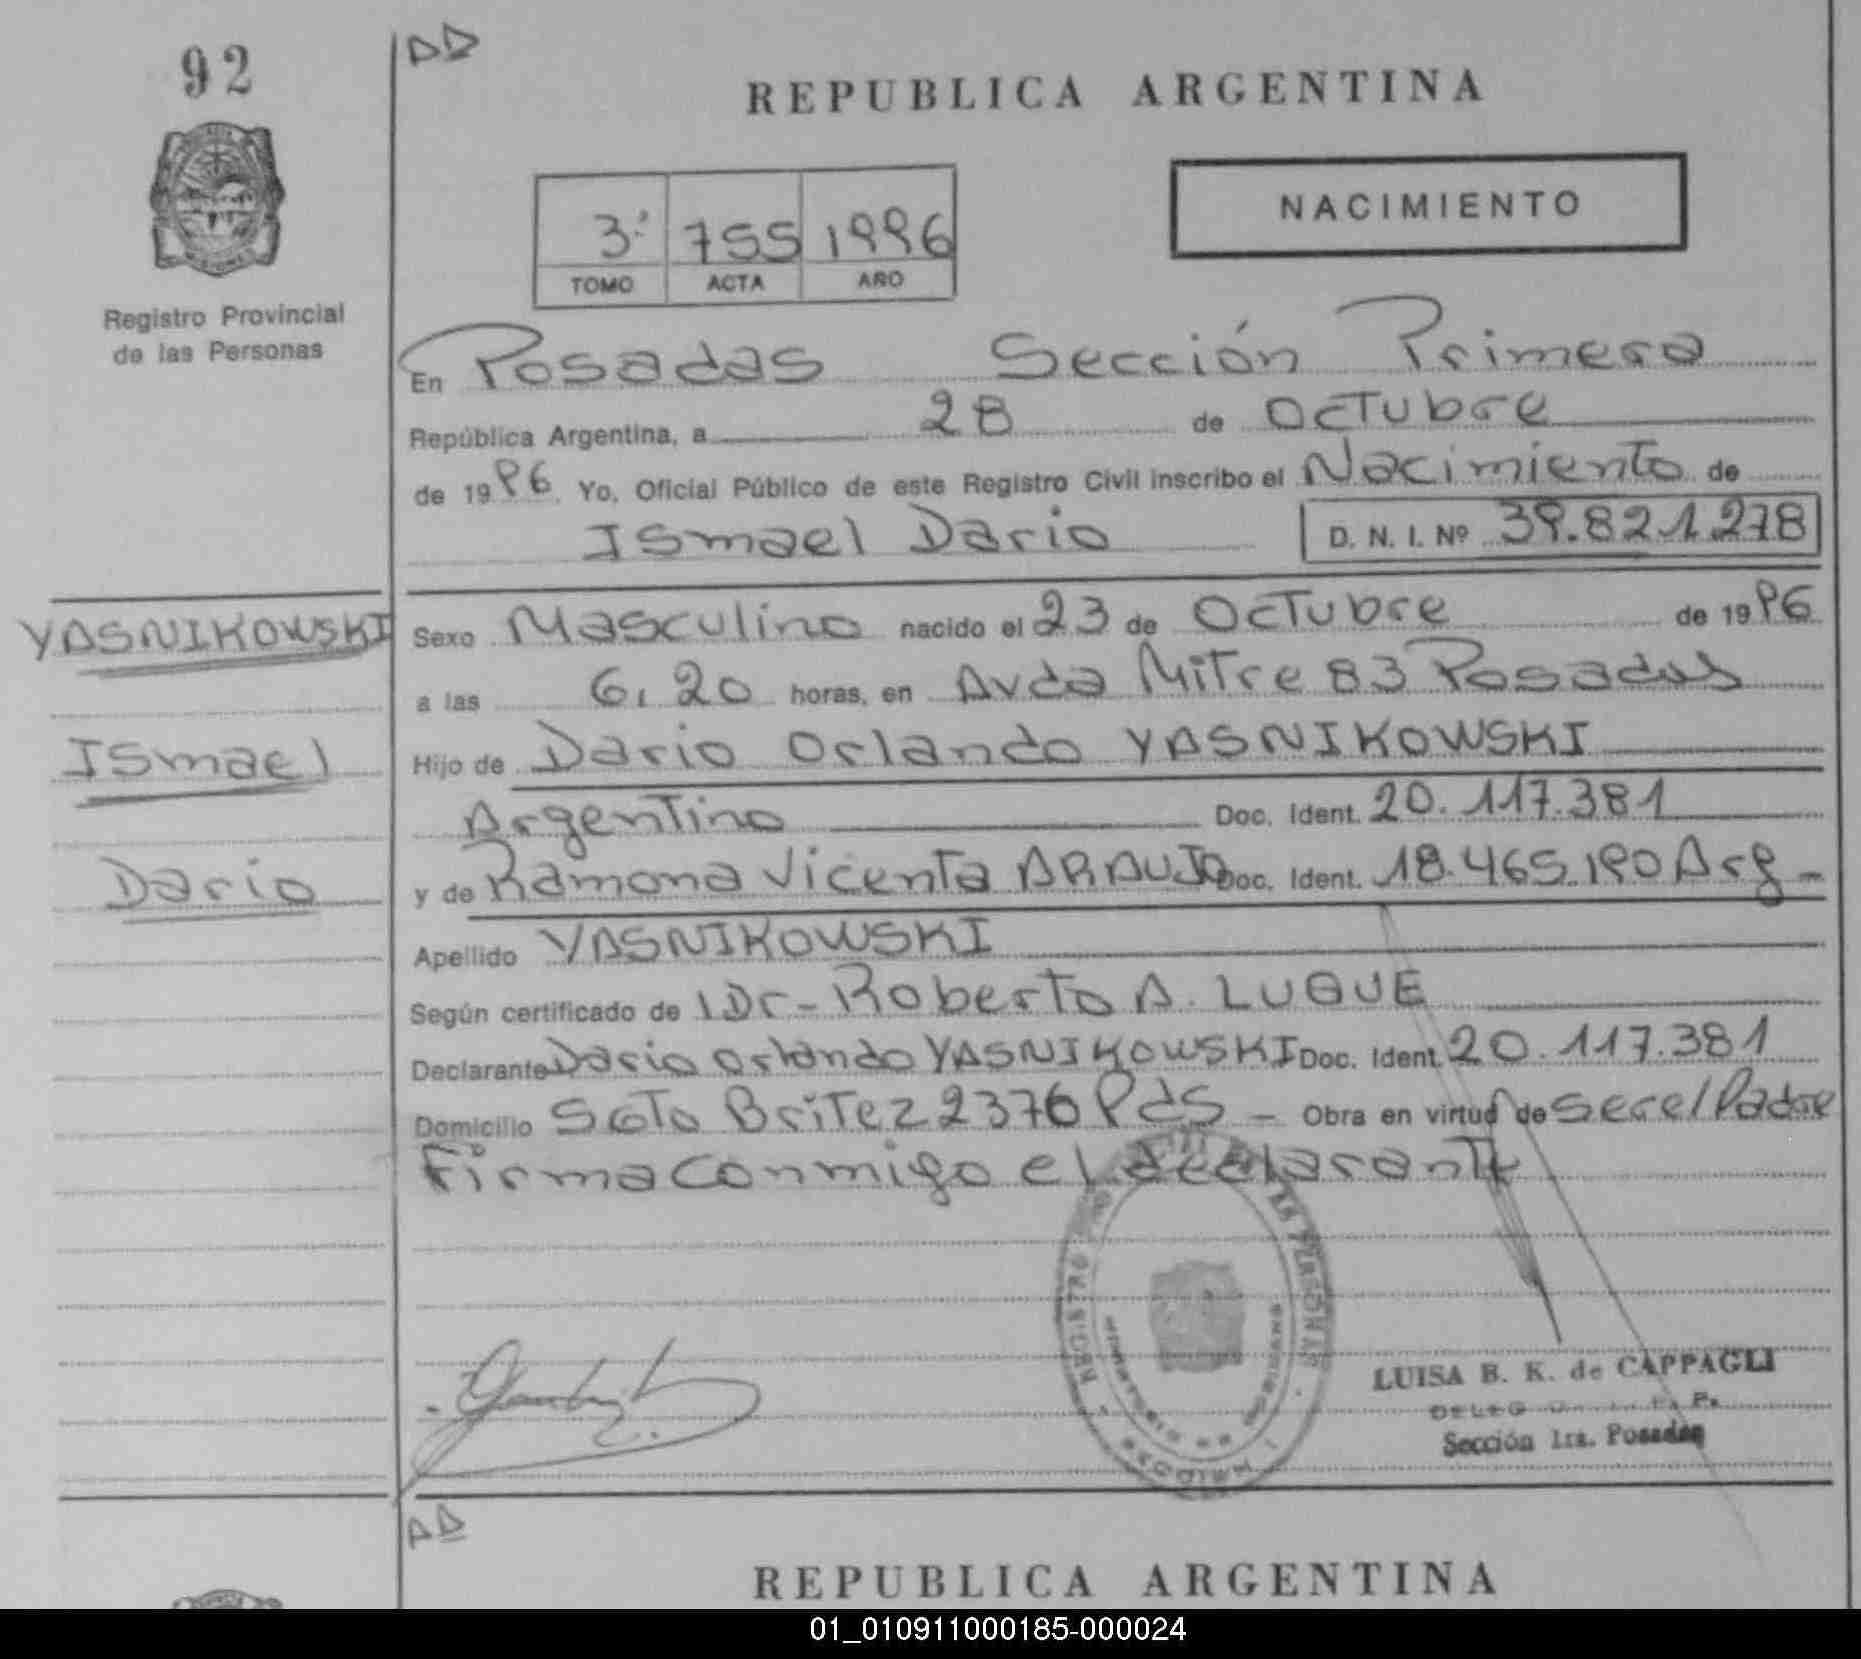 92
DD
REPUBLICA ARGENTINA
NACIMIENTO
3º 755 1996
TOMO ACTA AÑO
Registro Provincial
de las Personas
En Posadas Sección Primera
República Argentina, a 28 de Octubre
de 1996. Yo, Oficial Público de este Registro Civil inscribo el Nacimiento de
Ismael Dario D. N. I. Nº 39.821.278
YASNIKOWSKI
Ismael
Dario
Sexo Masculino nacido el 23 de Octubre de 1996
a las 6,20 horas, en Avda Mitre 83 Posadas
Hijo de Dario Orlando YASNIKOWSKI
Argentino Doc. Ident. 20.117.381
y de Ramona Vicenta ARAUJO Doc. Ident. 18.465.190 Arg -
Apellido YASNIKOWSKI
Según certificado de Dr- Roberto A. LUQUE
Declarante Dario Orlando YASNIKOWSKI Doc. Ident. 20.117.381
Domicilio Soto Britez 2376 Pds - Obra en virtud de ser el Padre
Firma conmigo el declarante
LUISA B. K. de CAPPAGLI
Sección 1ra. Posadas
DD
REPUBLICA ARGENTINA
01_010911000185-000024